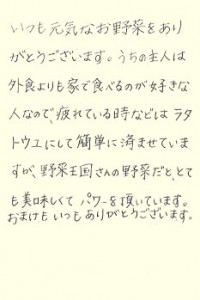 いつも元気なお野菜をあり
がとうございます。うちの主人は
外食よりも家で食べるのが好きな
人なので、疲れている時などは ラタ
トウユにして簡単に済ませていま
すが、野菜王国さんの野菜だと、とて
も美味しくて パワーを頂いています。
おまけも いつも ありがとうございます。